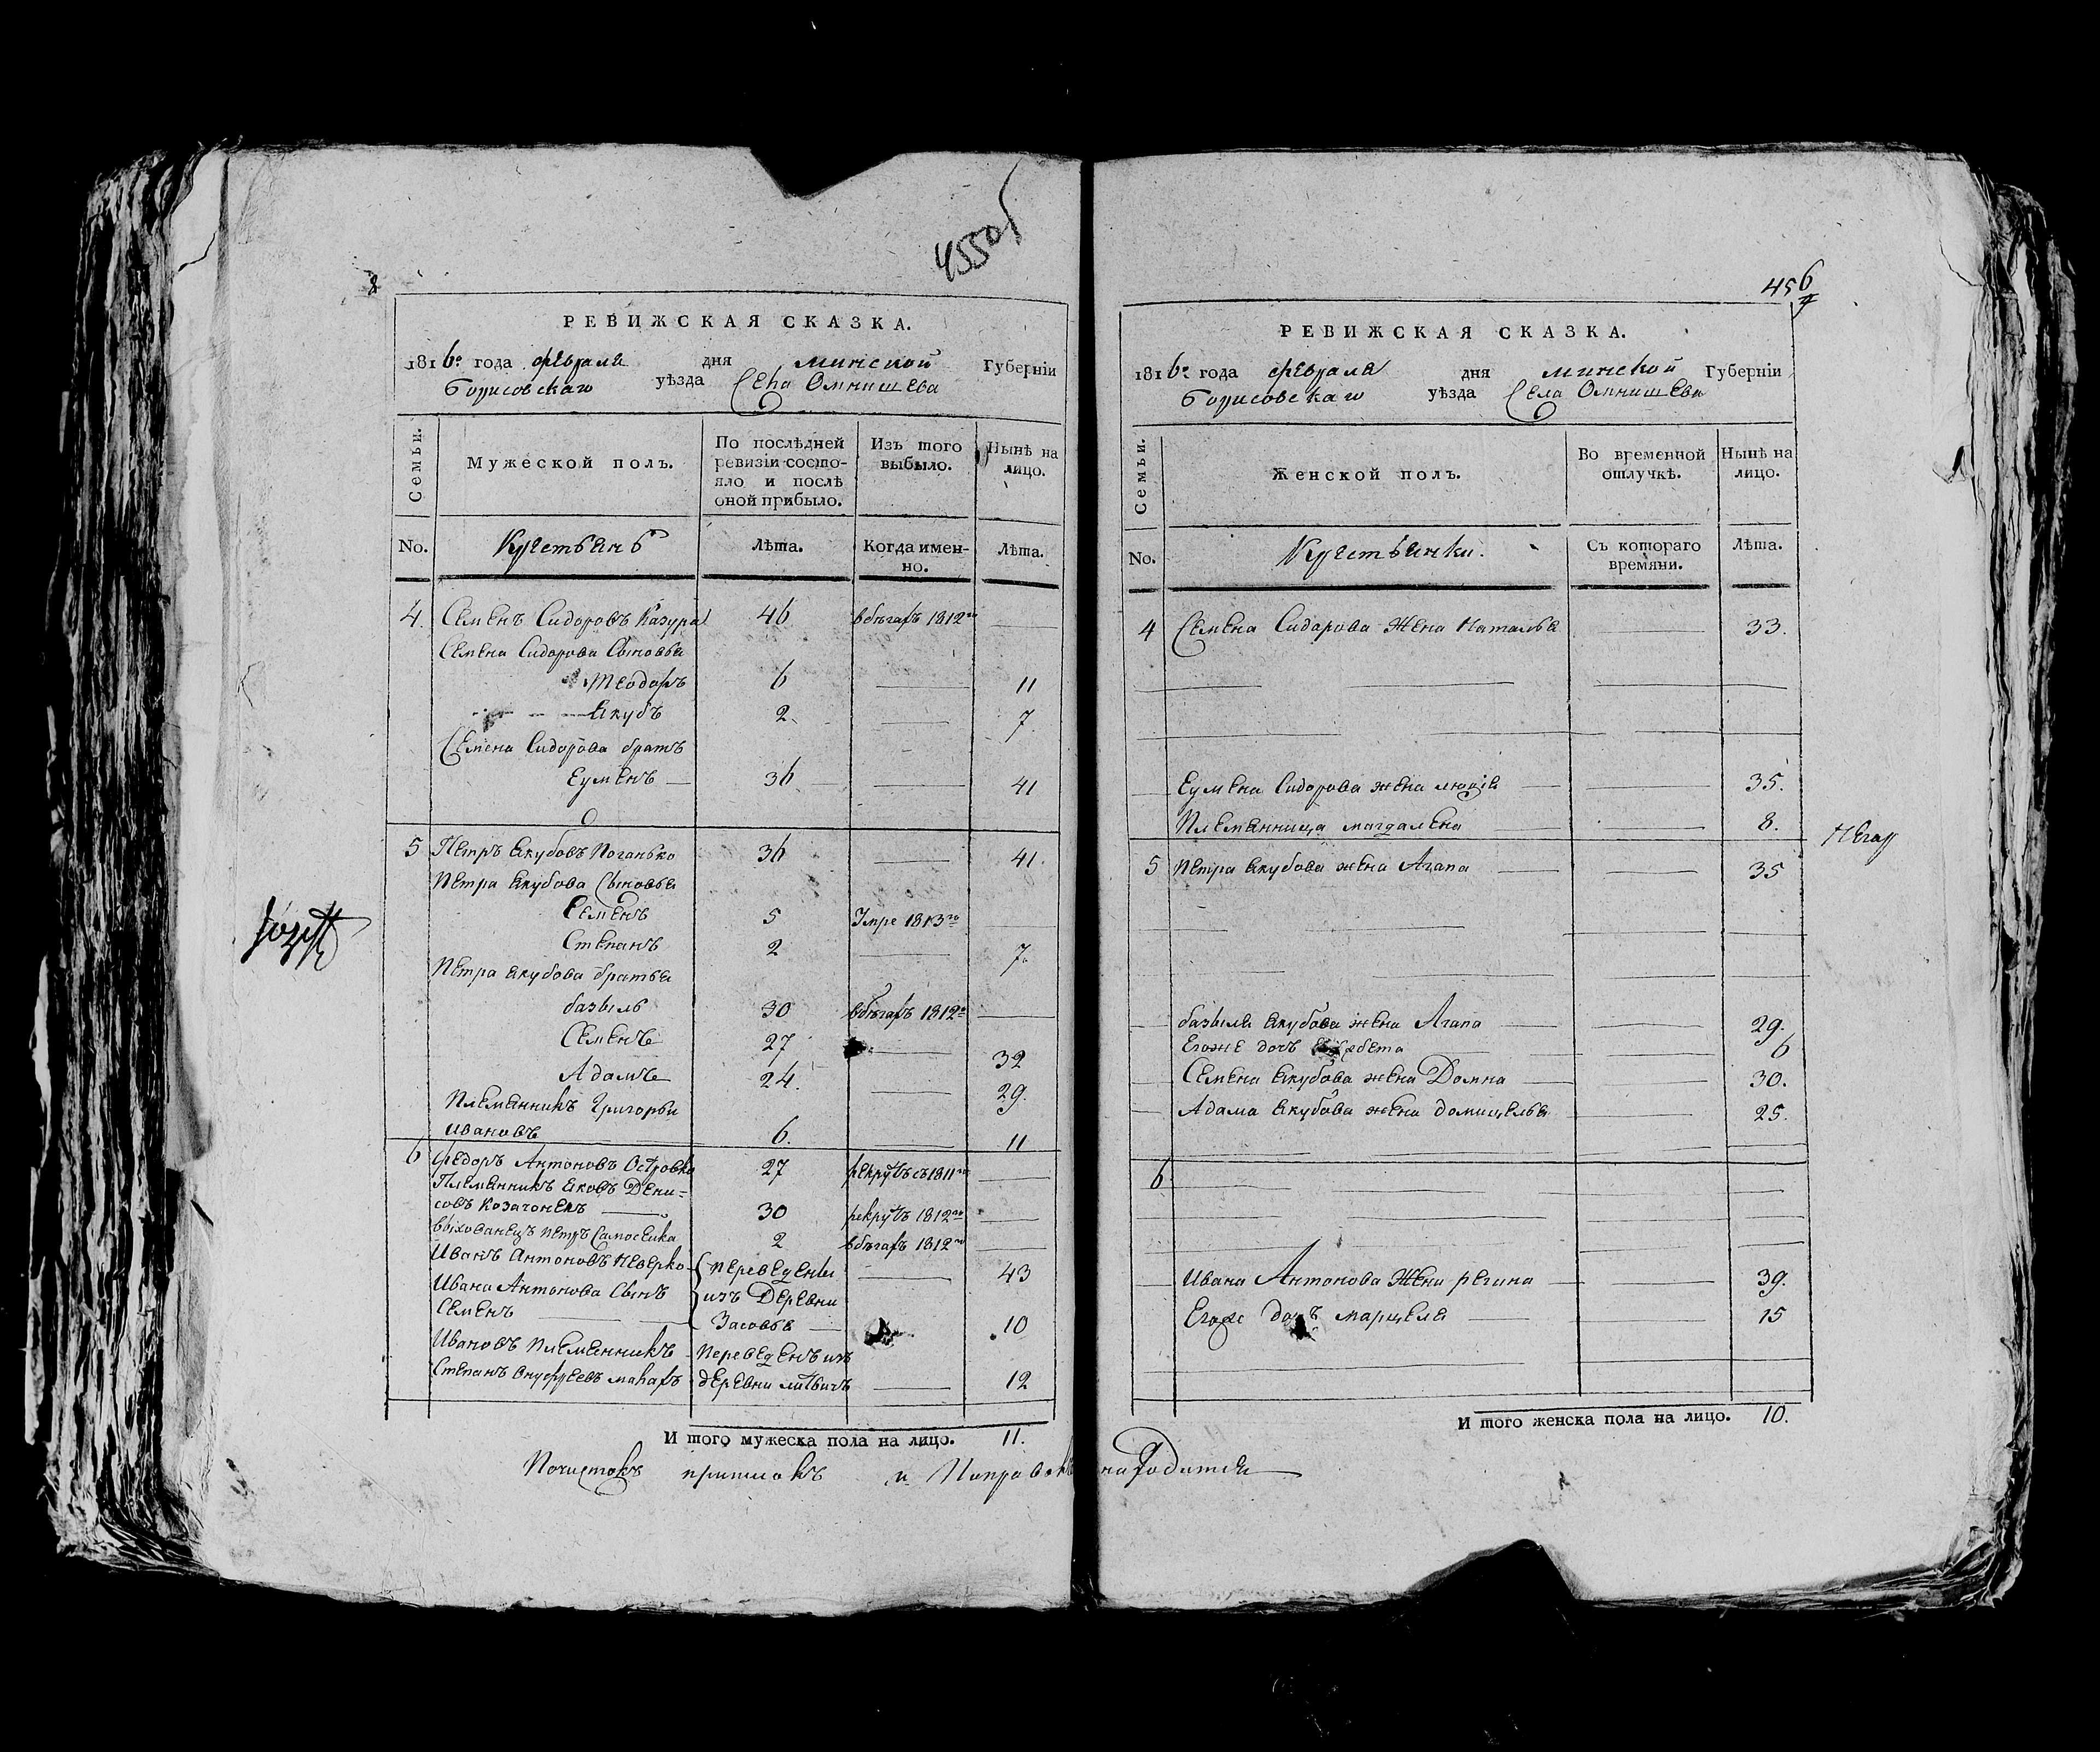 455 об
8
РЕВИЖСКАЯ СКАЗКА.
1816го года февраля дня минской Губерніи
Борисовскаго уѣзда Села Омнишева
Семьи.
Мужеской полъ.
По послѣдней ревизіи состо-
яло и послѣ оной прибыло.
Изъ того выбыло.
Нынѣ на лицо.
No. Крестьянъ Лѣта. Когда имен-
но. Лѣта.
4. Семенъ Сидоровъ Казура 46 вбѣгахъ 1812го —
Семена Сидорова Сыновья
Теодоръ 6 — 11
Якубъ 2 — 7
Семена Сидорова братъ
Еуменъ — 36 — 41
5 Петръ Якубовъ Поганько 36 — 41.
Петра Якубова Сыновья
Семенъ 5 Умре 1813го —
Степанъ 2 — 7.
Петра Якубова братья
базыль 30 вбѣгахъ 1812го —
Семенъ 27 — 32
Адамъ 24. — 29.
Племянникъ Григорьи
Ивановъ 6. — 11
6 Федоръ Антоновъ Островка 27 рекрутъ съ 1811го —
Племянникъ Яковъ Дени=
совъ Козаченекъ — 30 рекрутъ 1812го —
выхованецъ Петръ Самосейка 2 вбѣгахъ 1812го —
Иванъ Антоновъ Неверко переведены — 43
Ивана Антонова Сынъ изъ Деревни
Семенъ — Засовья — 10
Ивановъ Племянникъ переведенъ изъ
Степанъ Онуфреевъ макаръ деревни литвичъ — 12
И того мужеска пола на лицо. 11.
456
РЕВИЖСКАЯ СКАЗКА.
1816го года февраля дня минской Губерніи
Борисовскаго уѣзда Села Омнишева
Семьи.
Женской полъ.
Во временной отлучкѣ.
Нынѣ на лицо.
No. Крестьянки. Съ котораго
времяни. Лѣта.
4 Семена Сидарова Жена Наталья — 33.
Еумена Сидорова жена люція — 35.
Племянница магдалена — 8.
5 Петра Якубова жена Агапа — 35
базыля Якубова жена Агапа — 29.
Егоже дочъ — 6
Семена Якубова жена Домна — 30.
Адама Якубова жена домицелья — 25.
6
Ивана Антонова Жена регина — 39.
Егоже дочъ марцеля — 15
И того женска пола на лицо. 10.
Почистокъ приписокъ и Поправокъ ненаходится